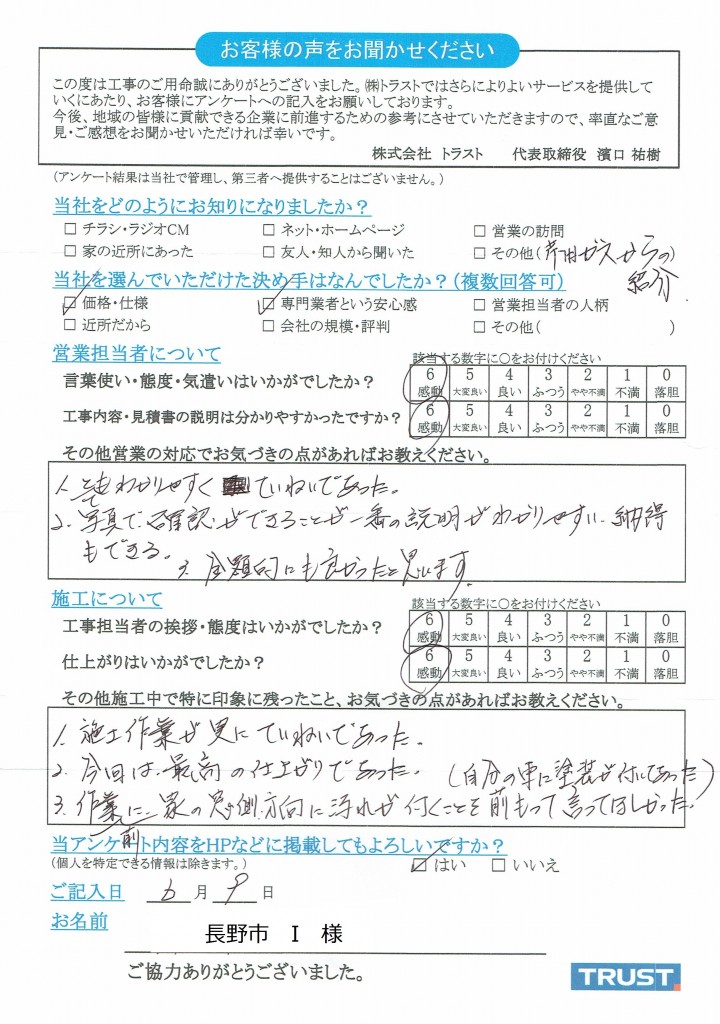 お客様の声をお聞かせください
この度は工事のご用命誠にありがとうございました。㈱トラストではさらによりよいサービスを提供して
いくにあたり、お客様にアンケートへの記入をお願いしております。
今後、地域の皆様に貢献できる企業に前進するための参考にさせていただきますので、率直なご意
見・ご感想をお聞かせいただければ幸いです。
株式会社 トラスト 代表取締役 濱口 祐樹
(アンケート結果は当社で管理し、第三者へ提供することはございません。)
当社をどのようにお知りになりましたか?
□ チラシ・ラジオCM □ ネット・ホームページ □ 営業の訪問
□ 家の近所にあった □ 友人・知人から聞いた □ その他( ガスからの
紹介
当社を選んでいただけた決め手はなんでしたか?(複数回答可)
☑ 価格・仕様 ☑ 専門業者という安心感 □ 営業担当者の人柄
□ 近所だから □ 会社の規模・評判 □ その他( )
営業担当者について 該当する数字に○をお付けください
言葉使い・態度・気遣いはいかがでしたか? 6感動 5大変良い 4良い 3ふつう 2やや不満 1不満 0落胆
工事内容・見積書の説明は分かりやすかったですか? 6感動 5大変良い 4良い 3ふつう 2やや不満 1不満 0落胆
その他営業の対応でお気づきの点があればお教えください。
1. とてもわかりやすく ていねいであった。
2. 写真で確認ができることが一番の説明がわかりやすい、納得
もできる。
3. 全題的にも良かったと思います。
施工について 該当する数字に○をお付けください
工事担当者の挨拶・態度はいかがでしたか? 6感動 5大変良い 4良い 3ふつう 2やや不満 1不満 0落胆
仕上がりはいかがでしたか? 6感動 5大変良い 4良い 3ふつう 2やや不満 1不満 0落胆
その他施工中で特に印象に残ったこと、お気づきの点があればお教えください。
1. 施工作業が実にていねいであった。
2. 今回は最高の仕上がりであった。(自分の車に塗装が付いてあった)
3. 作業前に 家の 側方向に汚れが付くことを前もって言ってほしかった。
当アンケート内容をHPなどに掲載してもよろしいですか?
(個人を特定できる情報は除きます。) ☑ はい □ いいえ
ご記入日 6 月 9 日
お名前 長野市 I 様
ご協力ありがとうございました。
TRUST.